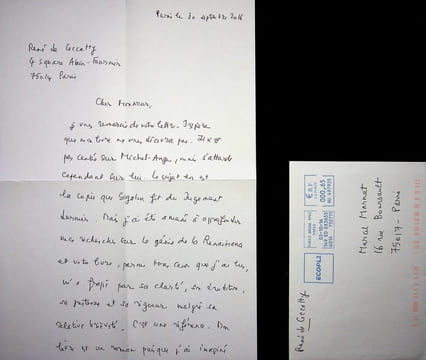 Paris le 30 septembre 2016
René de Ceccatty
4 square Alain-Fournier
75014 Paris
Cher Monsieur,
je vous remercie de votre lettre. J'espère
que mon livre ne vous décevra pas. Il n'est
pas centré sur Michel-Ange, mais s'attarde
cependant sur lui. Le sujet en est
la copie que Sigalon fit du Jugement
dernier. Mais j'ai été amené à approfondir
mes recherches sur le génie de la Renaissance
et votre livre, parmi tous ceux que j'ai lus,
m'a frappé par sa clarté, son érudition,
sa justesse et sa rigueur malgré sa
relative brièveté. C'est une référence. Mon
livre est un roman puisque j'ai imaginé
€ R.F.
000,65
ECOPLI
Marcel Marnat
16 rue Dawsault
75017 - Paris
René de Ceccatty